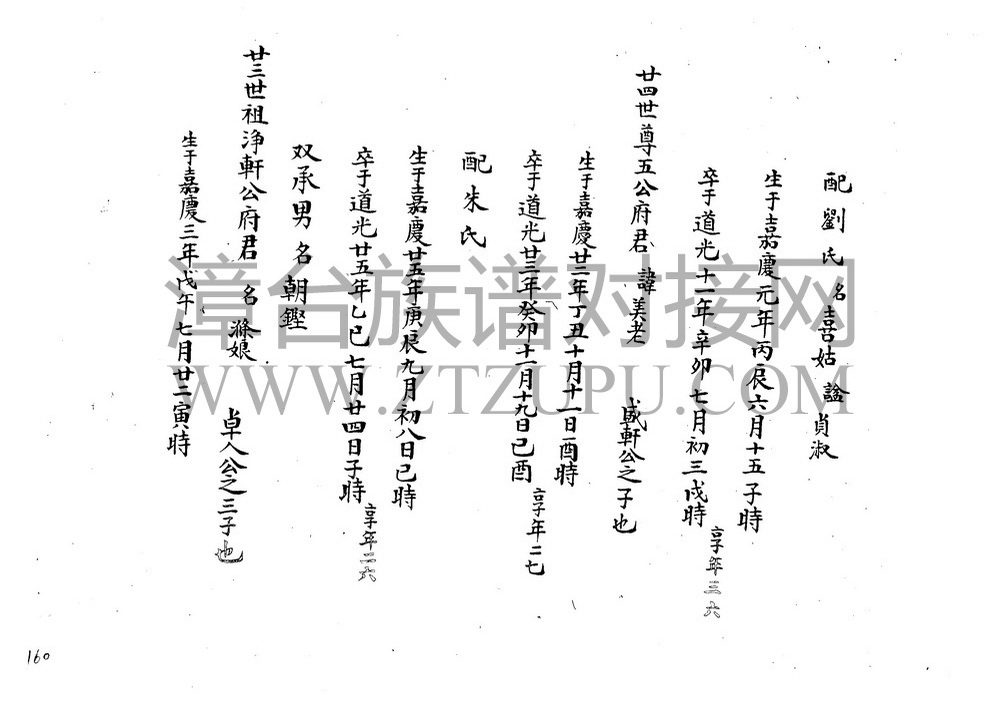 配劉氏 名喜姑 謚貞淑
生于嘉慶元年丙辰六月十五子時
卒于道光十一年辛卯七月初三戌時 享年三六
廿四世尊五公府君 諱美老 盛軒公之子也
生于嘉慶廿二年丁丑十月十一日酉時
卒于道光廿三年癸卯十一月十九日己酉 享年二七
配朱氏
生于嘉慶廿五年庚辰九月初八日巳時
卒于道光廿五年乙巳七月廿四日子時 享年二六
双承男名朝鏗
廿三世祖淨軒公府君 名滌娘 卓人公之三子也
生于嘉慶三年戊午七月廿二寅時
漳台族谱对接网
WWW.ZTZUPU.COM
160